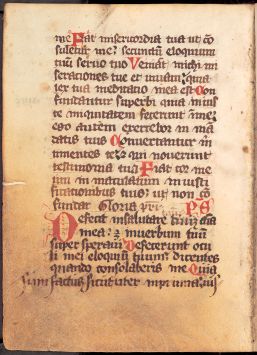 me Fiat misericordia tua ut co
soletur me: secundum eloquium
tuū servo tuo Veniat michi mi
serationes tue et vivam: quia
lex tua meditatio mea est Con
fundantur superbi quia inius
te iniquitatem fecerunt in me:
ego autem exercebor in mā
datis tuis Convertantur
timentes te: qui noverunt
testimonia tua Fiat cor me
um in maculatum in iusti
ficationibus tuis: ut non co
fundar Gloria pri
Defecit in salutare tuū aīa
mea: in verbum tuum
super speravi Defecerunt ocu
li mei eloquium tuum: dicentes
quando consolaberis me Quia
sum factus sicut uter in pruina: